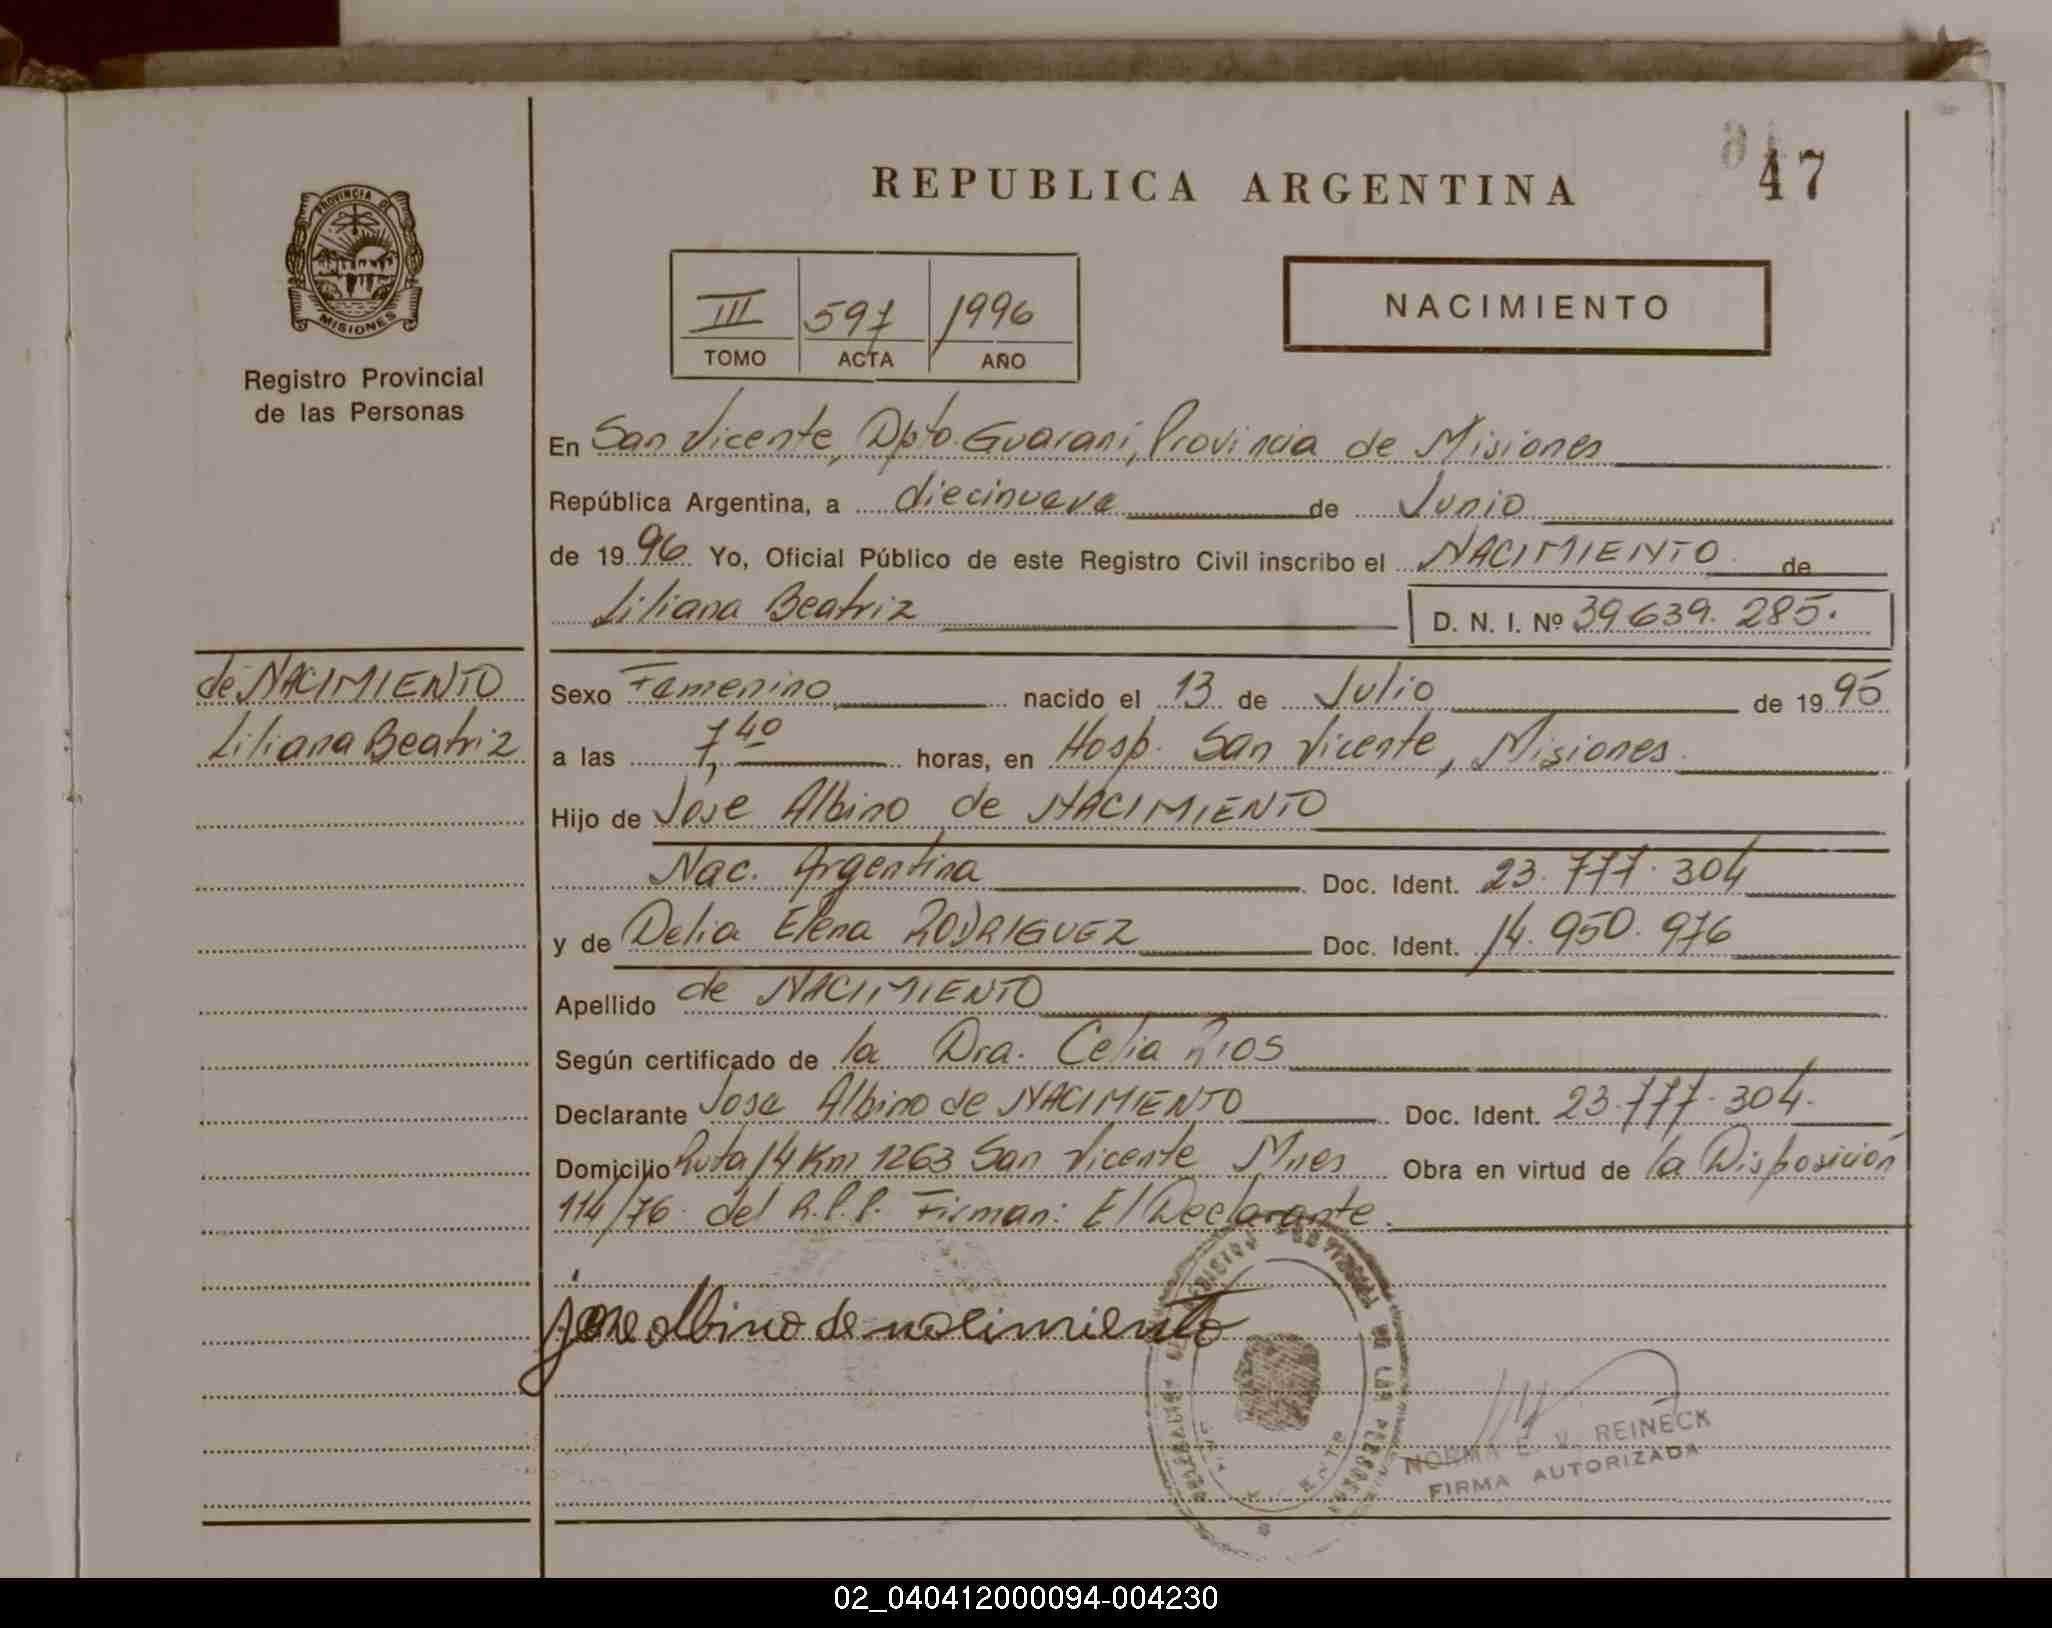 REPUBLICA ARGENTINA
47
PROVINCIA DE
MISIONES
Registro Provincial
de las Personas
III 597 1996
TOMO ACTA AÑO
NACIMIENTO
En San Vicente, Dpto. Guaraní, Provincia de Misiones
República Argentina, a diecinueve de Junio
de 1996 Yo, Oficial Público de este Registro Civil inscribo el NACIMIENTO de
Liliana Beatriz D. N. I. Nº 39639.285.
de NACIMIENTO
Liliana Beatriz
Sexo Femenino nacido el 13 de Julio de 1995
a las 7,40 horas, en Hosp. San Vicente, Misiones
Hijo de Jose Albino de NACIMIENTO
Nac. Argentina Doc. Ident. 23.777.304
y de Delia Elena RODRIGUEZ Doc. Ident. 14.950.976
Apellido de NACIMIENTO
Según certificado de la Dra. Celia Rios
Declarante Jose Albino de NACIMIENTO Doc. Ident. 23.777.304.
Domicilio Ruta 14 Km 1263 San Vicente Mnes Obra en virtud de la Disposición
114/76 del R.P.P. Firman: El Declarante.
jose albino de nacimiento
NORMA E. V. REINECK
FIRMA AUTORIZADA
02_040412000094-004230